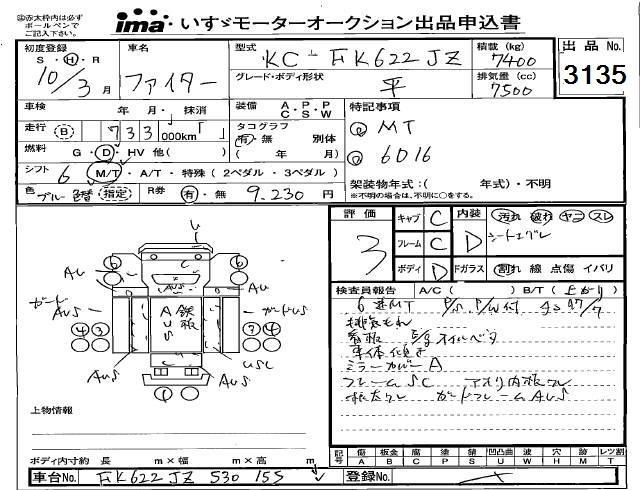 赤太枠内は必ずボールペンでご記入下さい。
ima いすゞモーターオークション出品申込書
初度登録 S・H・R 10/3月
車名 ファイター
型式 KC-FK622JZ
積載 (kg) 7400
出品No. 3135
グレード・ボディ形状 平
排気量 (cc) 7500
車検 年 月・抹消
装備 A・P・P C・S・W
特記事項
走行 (B) 733 000km「 」
タコグラフ 有・無 別体 ( 年 月)
① MT
② 6016
燃料 G・D・HV 他( )
シフト 6 M/T・A/T・特殊(2ペダル・3ペダル)
架装物年式:( 年式)・不明
※不明の場合は、不明に○をする。
色 ブルー 色替 指定
R券 有・無 9,230円
評価 3
キャブ C
内装 D 汚れ 破れ ヤニ スレ
フレーム C
ボディ D
Fガラス 割れ 線 点傷 イバリ
検査員報告 A/C ( ) B/T (上がり)
6速MT P/S P/W付
排気もれ
看板
車体傾き
ミラーカバーA
フレームSC アオリ内板
ガードフレームAUS
U
AU
AUS
C
AU
ガード AUS
鉄板 AUS
ガードUS
USC
AUS
AUS
⑥ ⑥
④ ③ ⑦ ④
上物情報
ボディ内寸約 長 m×幅 m×高 m
記号 傷A 板金B 腐C 塗P 錆S 凹凸凸凹U 波W 穴H 跡M レツ割T
車台No. FK622JZ 530155
登録No.